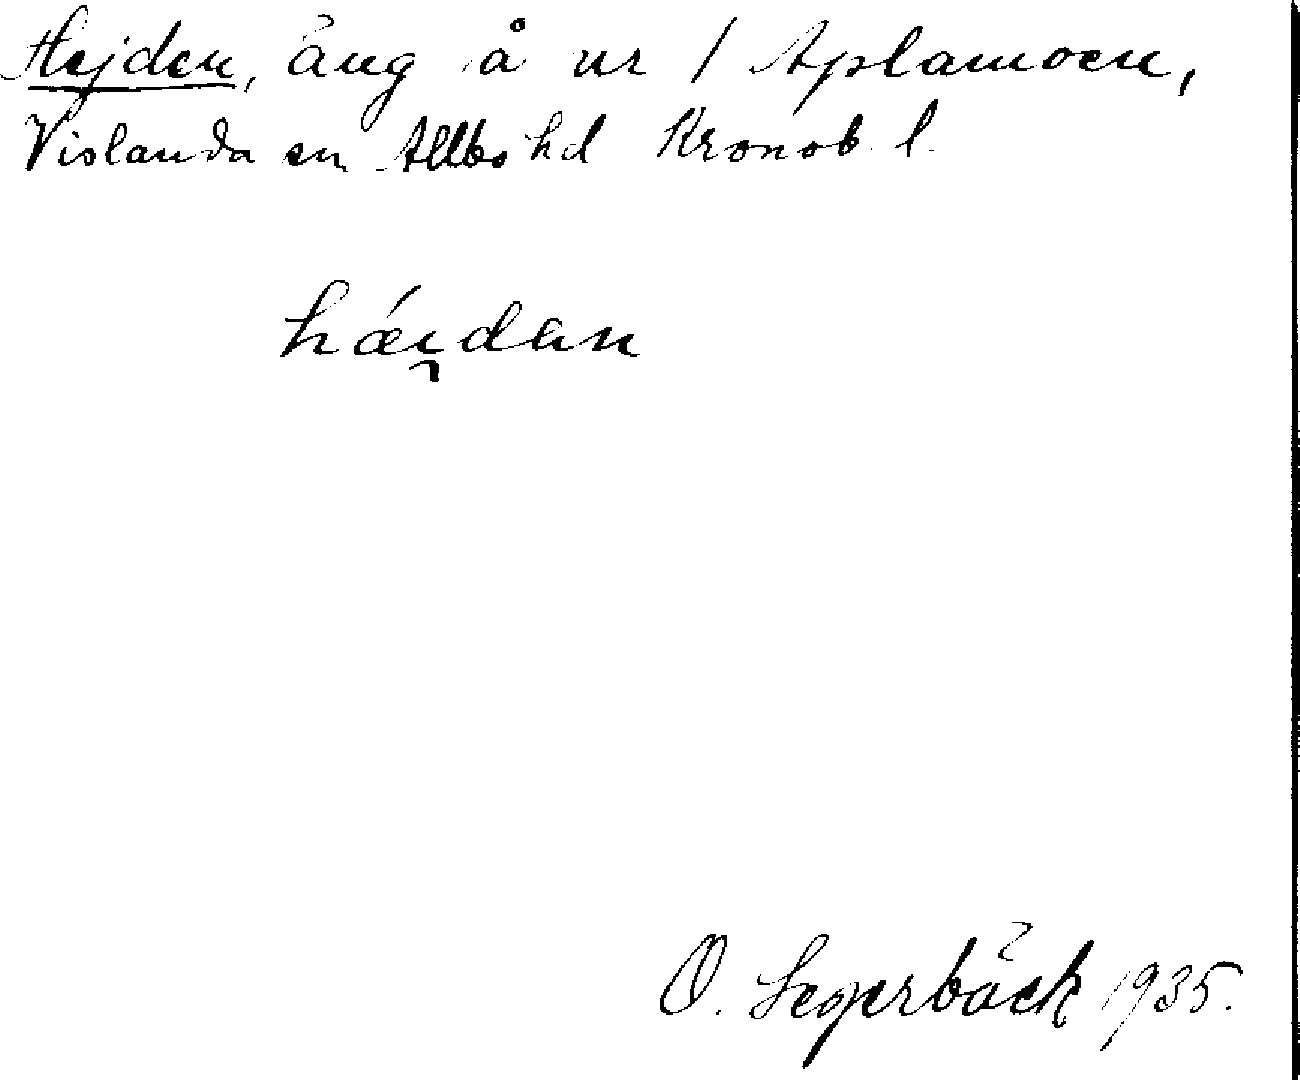 Hejden, äng å nr 1 Aplamoen,
Vislanda sn Allbo hd Kronob. l.
hǽi̯dan
O. Segerbäck 1935.